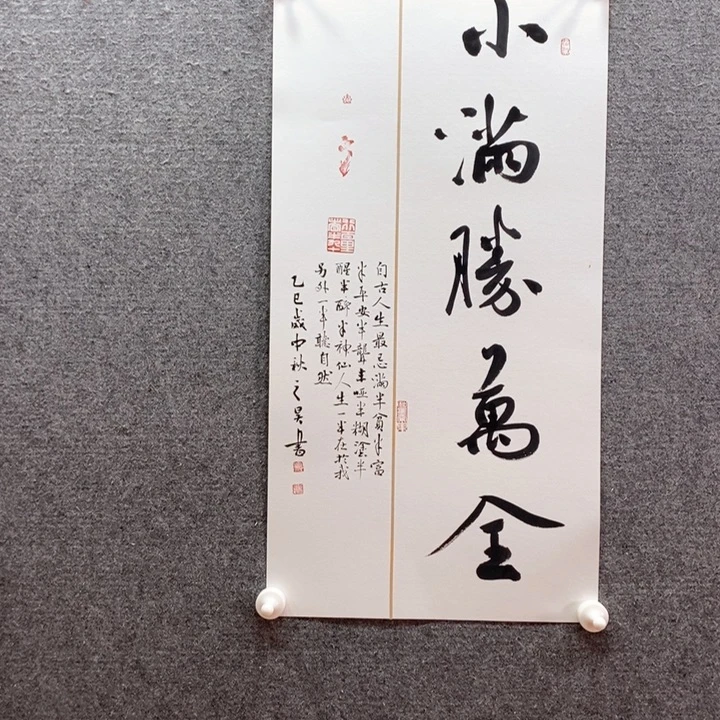 小满勝萬全
自古人生最忌满半貧半富
半平安半聾半啞半糊塗半
醒半醉半神仙人生一半在於我
另外一半聽自然
乙巳歲中秋之昊書